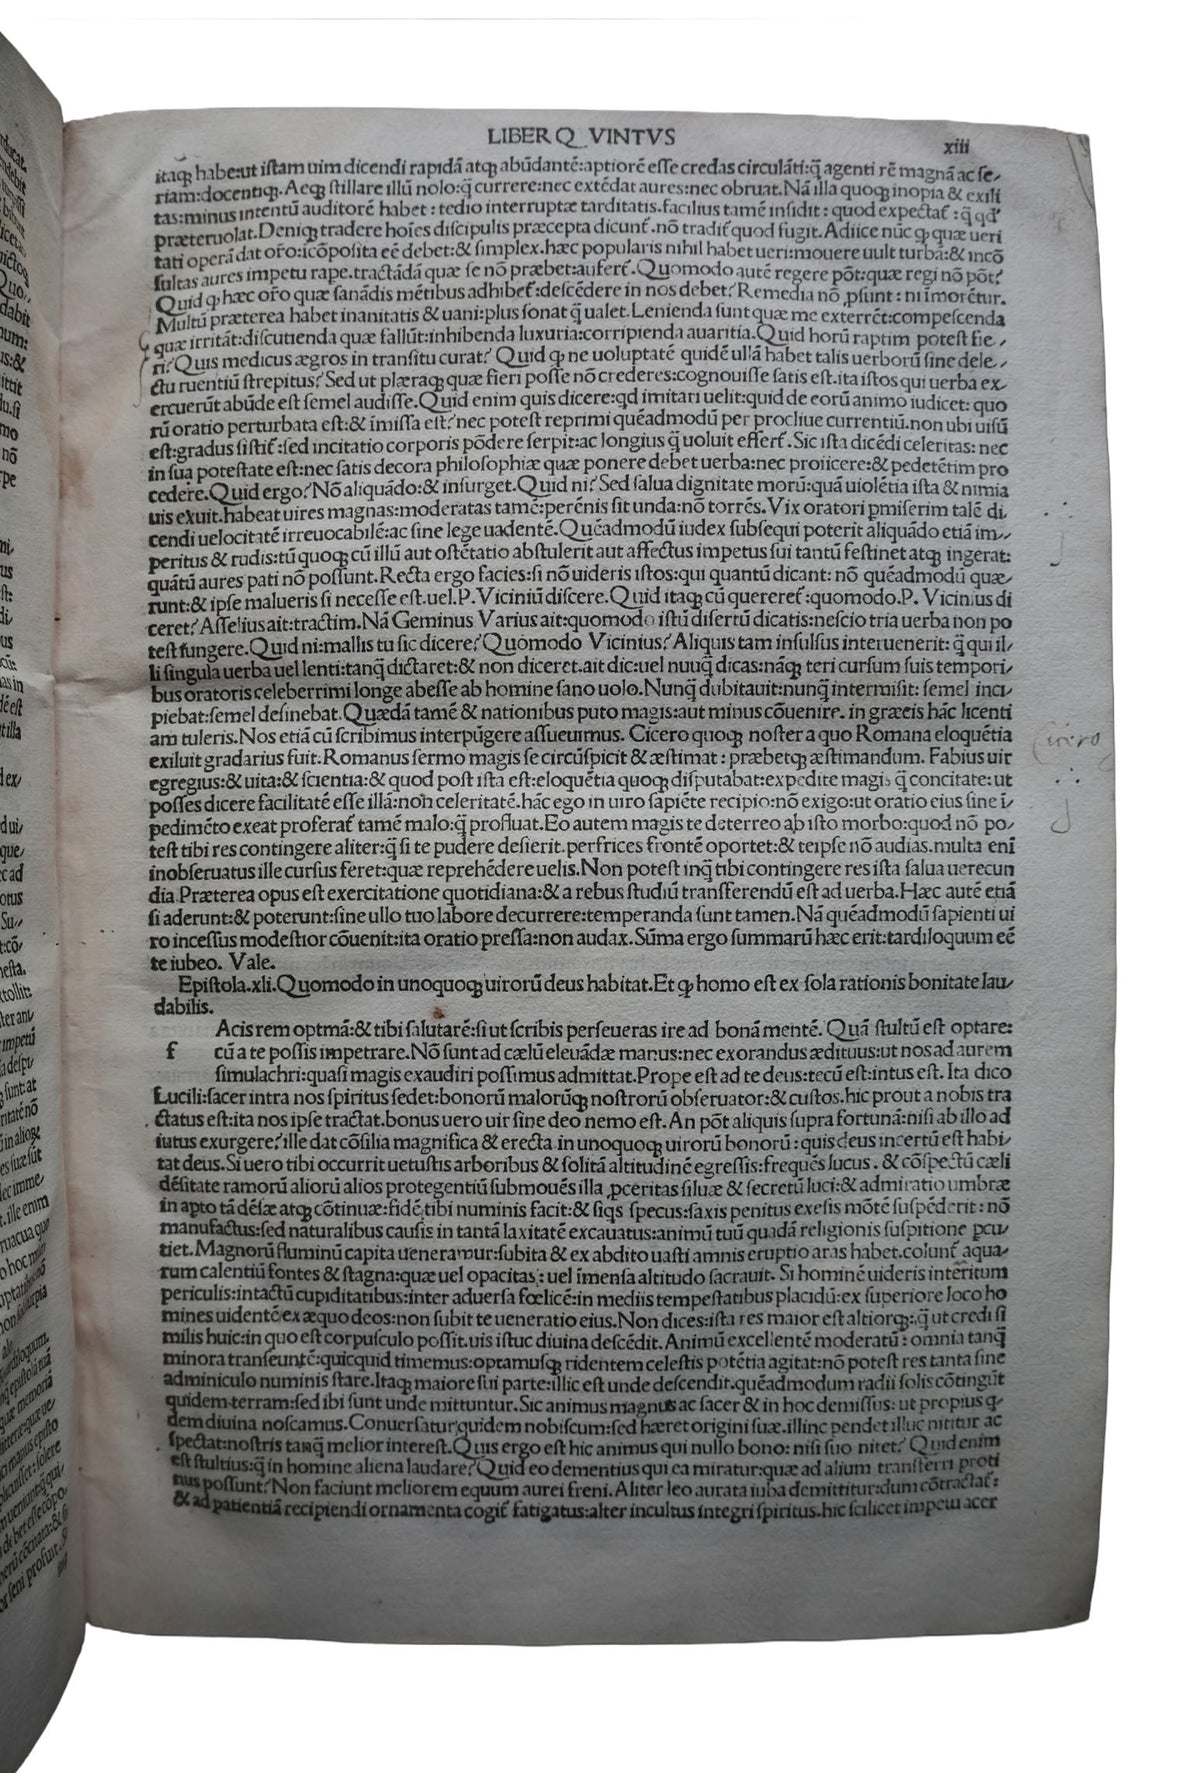 LIBER Q VINTVS
xiii
itaqꝫ habe:ut istam uim dicendi rapidā atqꝫ abūdantē:aptiorē esse credas circulāti:q̄ agenti rē magnā ac se/
riam:docentiqꝫ.Aeqꝫ stillare illū nolo:q̄ currere:nec extēdat aures:nec obruat.Nā illa quoqꝫ inopia & exili
tas:minus intentū auditorē habet : tedio interruptæ tarditatis.facilius tamē insidit : quod expectat᷑ : q̄ qđ
præteruolat.Deniqꝫ tradere hoīes discipulis præcepta dicunt᷑.nō tradit᷑ quod fugit.Adiice nūc qꝫ quæ ueri
tati operā dat or̄o:icōposita eē debet:& simplex.hæc popularis nihil habet ueri:mouere uult turbā:& incō
sultas aures impetu rape.tractādā quæ se nō præbet:aufert᷑.Quomodo autē regere pōt:quæ regi nō pōt?
Quid qꝫ hæc or̄o quæ sanādis mētibus adhibet᷑:descēdere in nos debet?Remedia nō ꝓsunt : ni īmorēnt᷑.
Multū præterea habet inanitatis & uani:plus sonat q̄ ualet.Lenienda sunt quæ me exterrēt:compescenda
quæ irritāt:discutienda quæ fallūt:inhibenda luxuria:corripienda auaritia.Quid horū raptim potest fie/
ri?Quis medicus ægros in transitu curat? Quid qꝫ ne uoluptatē quidē ullā habet talis uerborū sine dele/
ctu ruentiū strepitus?Sed ut plæraqꝫ quæ fieri posse nō crederes:cognouisse satis est.ita istos qui uerba ex/
ercuerūt abūde est semel audisse.Quid enim quis dicere:qd imitari uelit:quid de eorū animo iudicet: quo
rū oratio perturbata est:& īmissa est?nec potest reprimi quēadmodū per procliue currentiū.non ubi uisū
est:gradus sistit᷑:sed incitatio corporis pōdere serpit:ac longius q̄ uoluit effert᷑.Sic ista dicēdi celeritas: nec
in sua potestate est:nec satis decora philosophiæ quæ ponere debet uerba:nec proiicere:& pedetētim pro
cedere.Quid ergo?Nō aliquādo:& insurget.Quid ni?Sed salua dignitate morū:quā uiolētia ista & nimia
uis exuit.habeat uires magnas:moderatas tamē:perēnis sit unda:nō torrēs.Vix oratori ꝑmiserim talē di,
cendi uelocitatē irreuocabilē:ac sine lege uadentē.Quēadmodū iudex subsequi poterit aliquādo etiā im//
peritus & rudis:tū quoqꝫ cū illū aut ostētatio abstulerit aut affectus impetus sui tantū festinet atqꝫ ingerat:
quātū aures pati nō possunt.Recta ergo facies:si nō uideris istos:qui quantū dicant: nō quēadmodū quæ/
runt:& ipse malueris si necesse est.uel.P.Viciniū discere.Quid itaqꝫ cū quereret᷑:quomodo.P. Vicinius di
ceret?Asselius ait:tractim.Nā Geminus Varius ait:quomodo istū disertū dicatis:nescio tria uerba non po
test fungere.Quid ni:mallis tu sic dicere?Quomodo Vicinius?Aliquis tam insulsus interuenerit: q̄ qui il/
li singula uerba uel lenti:tanq̄ dictaret:& non diceret.ait dic:uel nuuq̄ dicas:nāqꝫ teri cursum suis tempori/
bus oratoris celeberrimi longe abesse ab homine sano uolo.Nunq̄ dubitauit:nunq̄ intermisit: semel inci/
piebat:semel desinebat.Quædā tamē & nationibus puto magis:aut minus cōuenire. in græcis hāc licenti
am tuleris.Nos etiā cū scribimus interpūgere assueuimus. Cicero quoqꝫ noster a quo Romana eloquētia
exiluit gradarius fuit.Romanus sermo magis se circūspicit & æstimat : præbetqꝫ æstimandum. Fabius uir
egregius:& uita:& scientia:& quod post ista est:eloquētia quoqꝫ disputabat:expedite magis q̄ concitate: ut
posses dicere facilitatē esse illā:non celeritatē.hāc ego in uiro sapiēte recipio:nō exigo:ut oratio eius sine ī/
pedimēto exeat proferat᷑ tamē malo:q̄ profluat.Eo autem magis te deterreo ab isto morbo:quod nō po/
test tibi res contingere aliter:q̄ si te pudere desierit.perfrices frontē oportet:& teipse nō audias.multa eni
inobseruatus ille cursus feret:quæ reprehēdere uelis.Non potest inq̄ tibi contingere res ista salua uerecun
dia.Præterea opus est exercitatione quotidiana:& a rebus studiū transferendū est ad uerba.Hæc autē etiā
si aderunt:& poterunt:sine ullo tuo labore decurrere:temperanda sunt tamen.Nā quēadmodū sapienti ui
ro incessus modestior cōuenit:ita oratio pressa:non audax.Sūma ergo summarū hæc erit:tardiloquum eē
te iubeo. Vale.
Cicero
Epistola.xli.Quomodo in unoquoqꝫ uirorū deus habitat.Et qꝫ homo est ex sola rationis bonitate lau/
dabilis.
Acis rem optmā:& tibi salutarē:si ut scribis perseueras ire ad bonā mentē. Quā stultū est optare:
f cū a te possis impetrare.Nō sunt ad cælū eleuādæ manus:nec exorandus ædituus:ut nos ad aurem
simulachri:quasi magis exaudiri possimus admittat.Prope est ad te deus:tecū est:intus est. Ita dico
Lucili:sacer intra nos spiritus sedet:bonorū malorūqꝫ nostrorū obseruator:& custos.hic prout a nobis tra
ctatus est:ita nos ipse tractat.bonus uero uir sine deo nemo est.An pōt aliquis supra fortunā:nisi ab illo ad
iutus exurgere?ille dat cōsilia magnifica & erecta.in unoquoqꝫ uirorū bonorū : quis deus incertū est habi/
tat deus.Si uero tibi occurrit uetustis arboribus & solitā altitudinē egressis:frequēs lucus . & cōspectū cæli
dēsitate ramorū aliorū alios protegentiū submouēs illa ꝓceritas siluæ & secretū luci:& admiratio umbræ
in apto tā dēsæ atqꝫ cōtinuæ:fidē tibi numinis facit:& siqs specus:saxis penitus exesis mōtē suspēderit : nō
manufactus:sed naturalibus causis in tantā laxitatē excauatus:animū tuū quadā religionis suspitione pcu/
tiet.Magnorū fluminū capita ueneramur:subita & ex abdito uasti amnis eruptio aras habet.colunt᷑ aqua/
rum calentiū fontes & stagna:quæ uel opacitas : uel īmensa altitudo sacrauit. Si hominē uideris interitum
periculis:intactū cupiditatibus:inter aduersa fœlicē:in mediis tempestatibus placidū:ex superiore loco ho
mines uidentē ex æquo deos:non subit te ueneratio eius.Non dices:ista res maior est altiorqꝫ:q̄ ut credi si
milis huic:in quo est corpusculo possit.uis istuc diuina descēdit.Animū excellentē moderatū : omnia tanq̄
minora transeuntē:quicquid timemus:optamusqꝫ ridentem celestis potētia agitat:nō potest res tanta sine
adminiculo numinis stare.Itaqꝫ maiore sui parte:illic est unde descendit.quēadmodum radii solis cōtingūt
quidem terram:sed ibi sunt unde mittuntur.Sic animus magnus ac sacer & in hoc demissus: ut propius q/
dem diuina noscamus.Conuersatur quidem nobiscum:sed hæret origini suæ.illinc pendet illuc nititur ac
spectat:nostris tanq̄ melior interest.Quis ergo est hic animus qui nullo bono: nisi suo nitet? Quid enim
est stultius:q̄ in homine aliena laudare?Quid eo dementius qui ea miratur:quæ ad alium transferri proti
nus possunt?Non faciunt meliorem equum aurei freni.Aliter leo aurata iuba demittitur:dum cōtractat᷑:
& ad patientiā recipiendi ornamenta cogit᷑ fatigatus:alter incultus integri spiritus.hic scilicet impetu acer